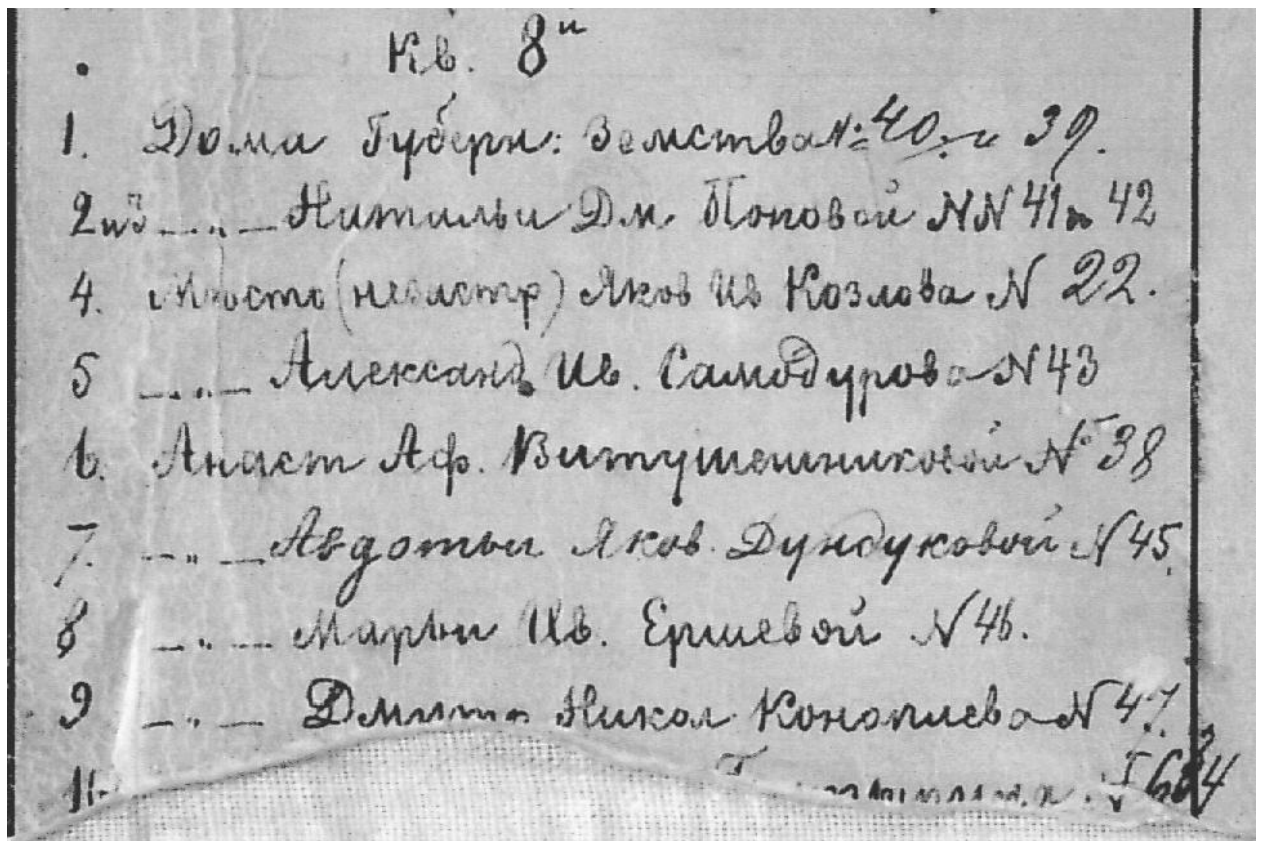 Кв. 8й
1. Дома Губерн: Земства № 40. и 39.
2 и 3 —„— Натальи Дм. Поповой NN 41 и 42
4. Место Яков Ив Козлова N 22.
5 —„— Александ Ив. Самодурова N 43
6. Анаст Аф. Витушешниковой № 38
7. —„— Авдотьи Яков. Дундуковой N 45.
8 —„— Марьи Ив. Ершевой N 46.
9 —„— Дмитр Никол Коноплева N 47.